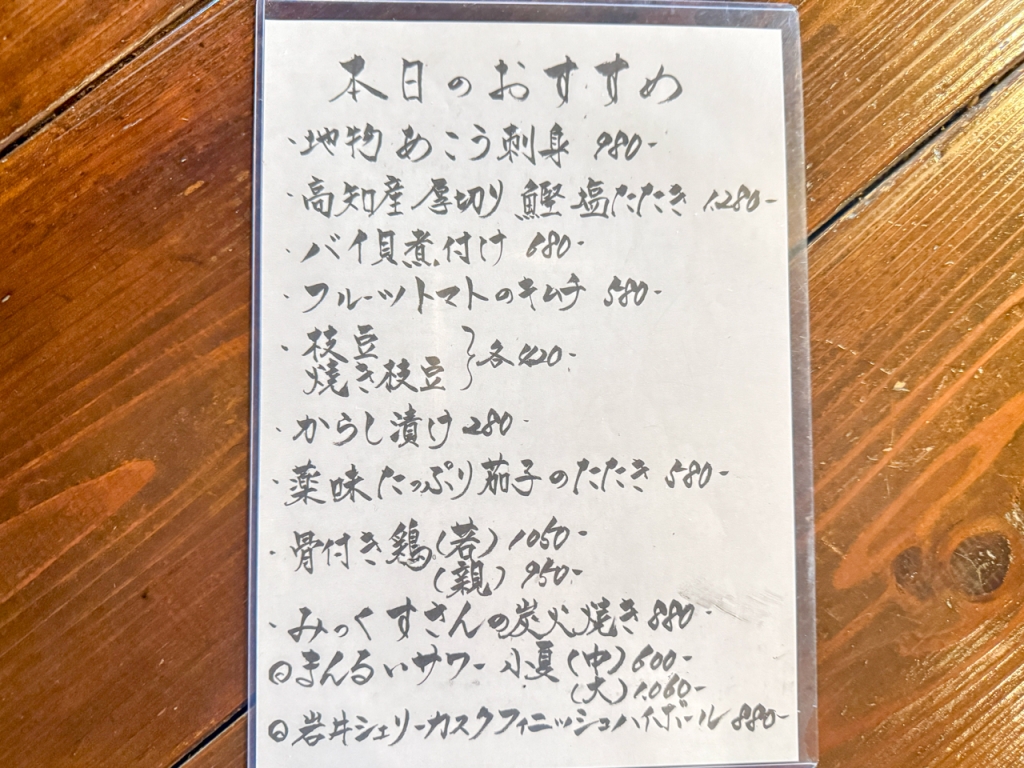 本日のおすすめ
・地物あこう刺身 980-
・高知産厚切り鰹塩たたき 1280-
・バイ貝煮付け 680-
・フルーツトマトのキムチ 580-
・枝豆
焼き枝豆 }各420-
・からし漬け 280-
・薬味たっぷり茄子のたたき 580-
・骨付き鶏(若) 1050-
(親) 950-
・みっくすきんの炭火焼き 880-
◎まんるいサワー 小夏(中) 600-
(大) 1,060-
◎岩井シェリーカスクフィニッシュハイボール 880-